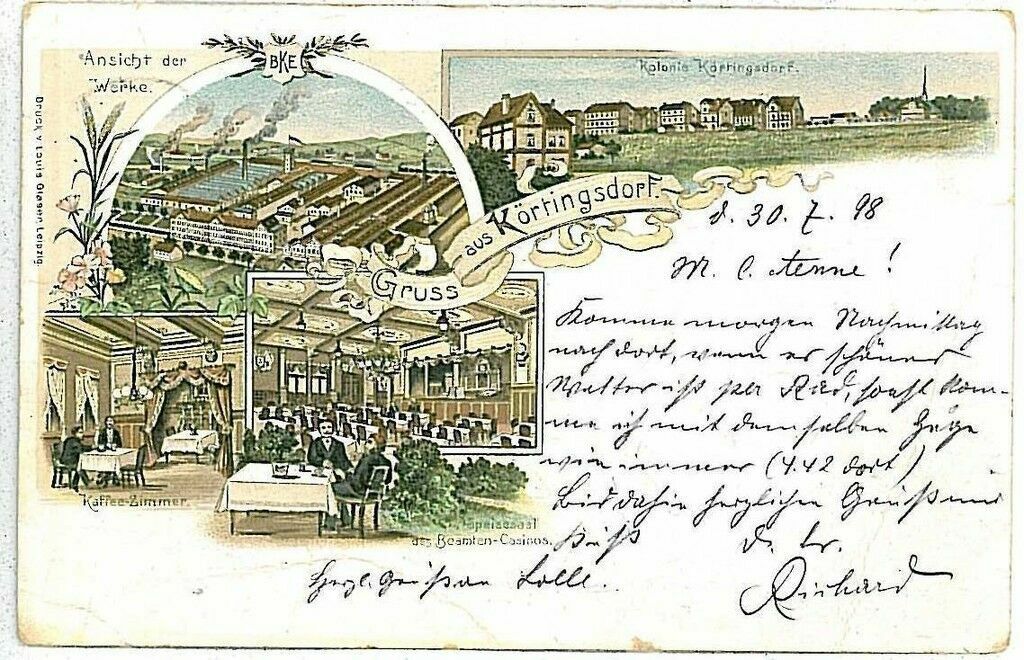 Ansicht der
Werke.
BKE
Kolonie Körtingsdorf.
Druck v. Louis Glaser Leipzig.
Gruss aus Körtingsdorf.
Kaffee-Zimmer.
Speisesaal
des Beamten-Casinos.
d. 30. 7. 98
M. l. Aenne!
Komme morgen Nachmittag
nach dort, wenn es schönes
Wetter ist per Rad, sonst kom-
me ich mit demselben Zuge
wie immer (4.42 dort)
Bis dahin herzlichen Gruß und
Kuß d. tr.
Richard
Herzl. Gruß an Lolle.